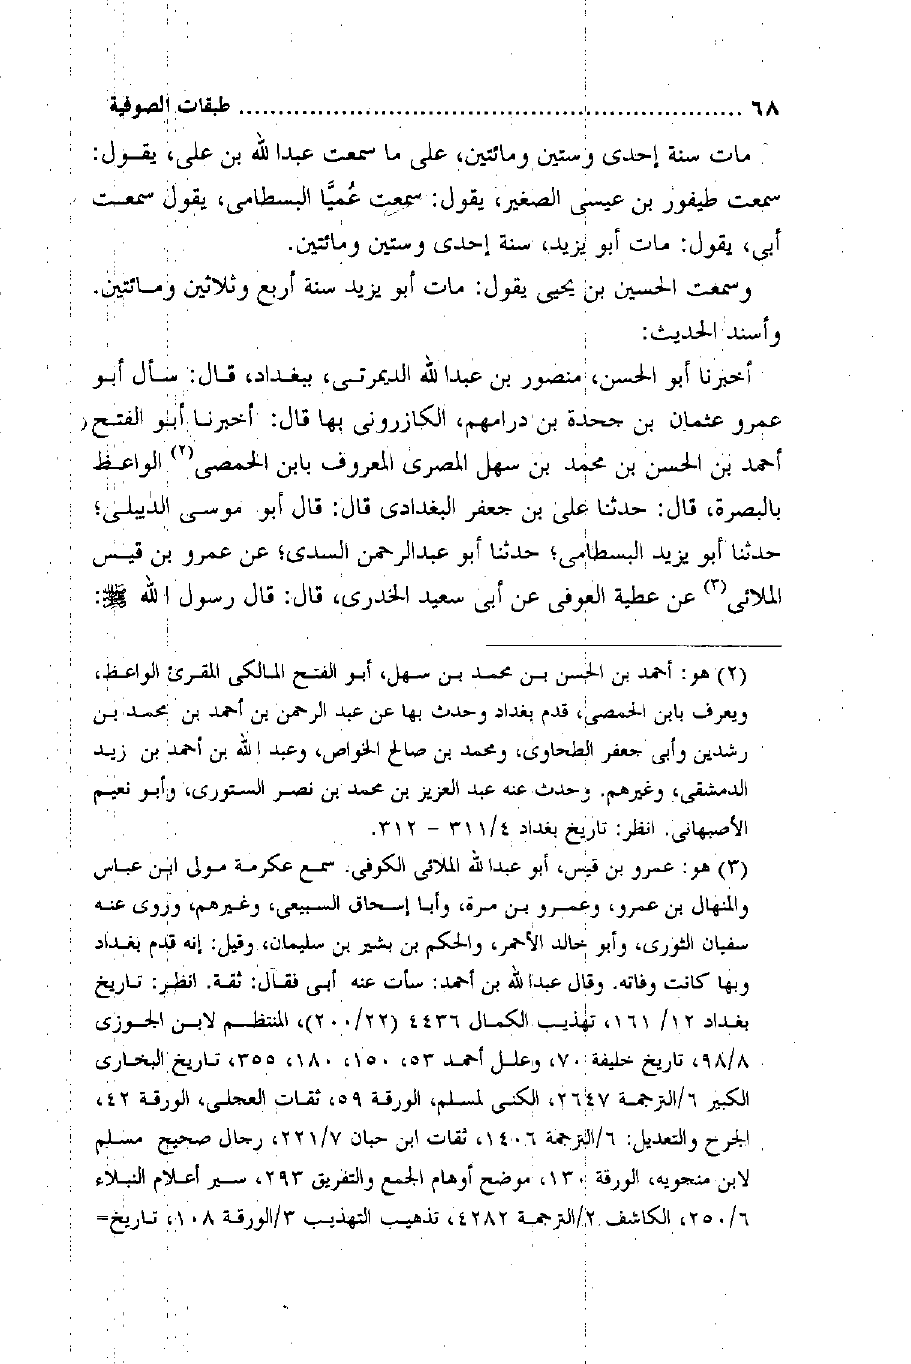 ٦٨ ............................................................... طبقات الصوفية
مات سنة إحدى وستين ومائتين، على ما سمعت عبدالله بن على، يقول:
سمعت طيفور بن عيسى الصغير، يقول: سمعت عُميًّا البسطامى، يقول سمعت
أبى، يقول: مات أبو يزيد، سنة إحدى وستين ومائتين.
وسمعت الحسين بن يحيى يقول: مات أبو يزيد سنة أربع وثلاثين ومائتين.
وأسند الحديث:
أخبرنا أبو الحسن، منصور بن عبدالله الديمرتى، ببغداد، قال: سأل أبو
عمرو عثمان بن جحدة بن درامهم، الكازرونى بها قال: أخبرنا أبو الفتح،
أحمد بن الحسن بن محمد بن سهل المصرى المعروف بابن الحمصى(٢) الواعظ
بالبصرة، قال: حدثنا على بن جعفر البغدادى قال: قال أبو موسى الدبيلى؛
حدثنا أبو يزيد البسطامى؛ حدثنا أبو عبدالرحمن السدى؛ عن عمرو بن قيس
الملائى(٣) عن عطية العوفى عن أبى سعيد الخدرى، قال: قال رسول الله ﷺ:
(٢) هو: أحمد بن الحسن بن محمد بن سهل، أبو الفتح المالكى المقرئ الواعظ،
ويعرف بابن الحمصى، قدم بغداد وحدث بها عن عبد الرحمن بن أحمد بن محمد بن
رشدين وأبى جعفر الطحاوى، ومحمد بن صالح الخواص، وعبد الله بن أحمد بن زيد
الدمشقى، وغيرهم. وحدث عنه عبد العزيز بن محمد بن نصر الستورى، وأبو نعيم
الأصبهانى. انظر: تاريخ بغداد ٣١١/٤ – ٣١٢.
(٣) هو: عمرو بن قيس، أبو عبدالله الملائى الكوفى. سمع عكرمة مولى ابن عباس
والمنهال بن عمرو، وعمرو بن مرة، وأبا إسحاق السبيعى، وغيرهم، وروى عنه
سفيان الثورى، وأبو خالد الأحمر، والحكم بن بشير بن سليمان، وقيل: إنه قدم بغداد
وبها كانت وفاته. وقال عبدالله بن أحمد: سأت عنه أبى فقال: ثقة. انظر: تاريخ
بغداد ١٢/ ١٦١، تهذيب الكمال ٤٤٣٦ (٢٠٠/٢٢)، المنتظم لابن الجوزى
٩٨/٨، تاريخ خليفة ٧٠، وعلل أحمد ٥٣، ١٥٠، ١٨٠، ٣٥٥، تاريخ البخارى
الكبير ٦/الترجمة ٢٦٤٧، الكنى لمسلم، الورقة ٥٩، ثقات العجلى، الورقة ٤٢،
الجرح والتعديل: ٦/الترجمة ١٤٠٦، ثقات ابن حبان ٢٢١/٧، رجال صحيح مسلم
لابن منجويه، الورقة ١٣٠، موضح أوهام الجمع والتفريق ٢٩٣، سير أعلام النبلاء
٢٥٠/٦، الكاشف ٢/الترجمة ٤٢٨٢، تذهيب التهذيب ٣/الورقة ١٠٨، تاريخ=